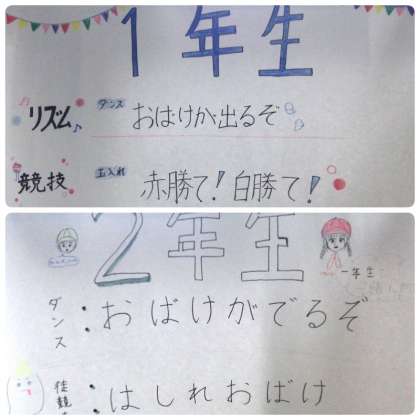 1年生
リズム ダンス おばけが出るぞ
競技 玉入れ 赤勝て！白勝て！
2年生
一年生
ダンス：おばけがでるぞ
徒競：はしれおばけ